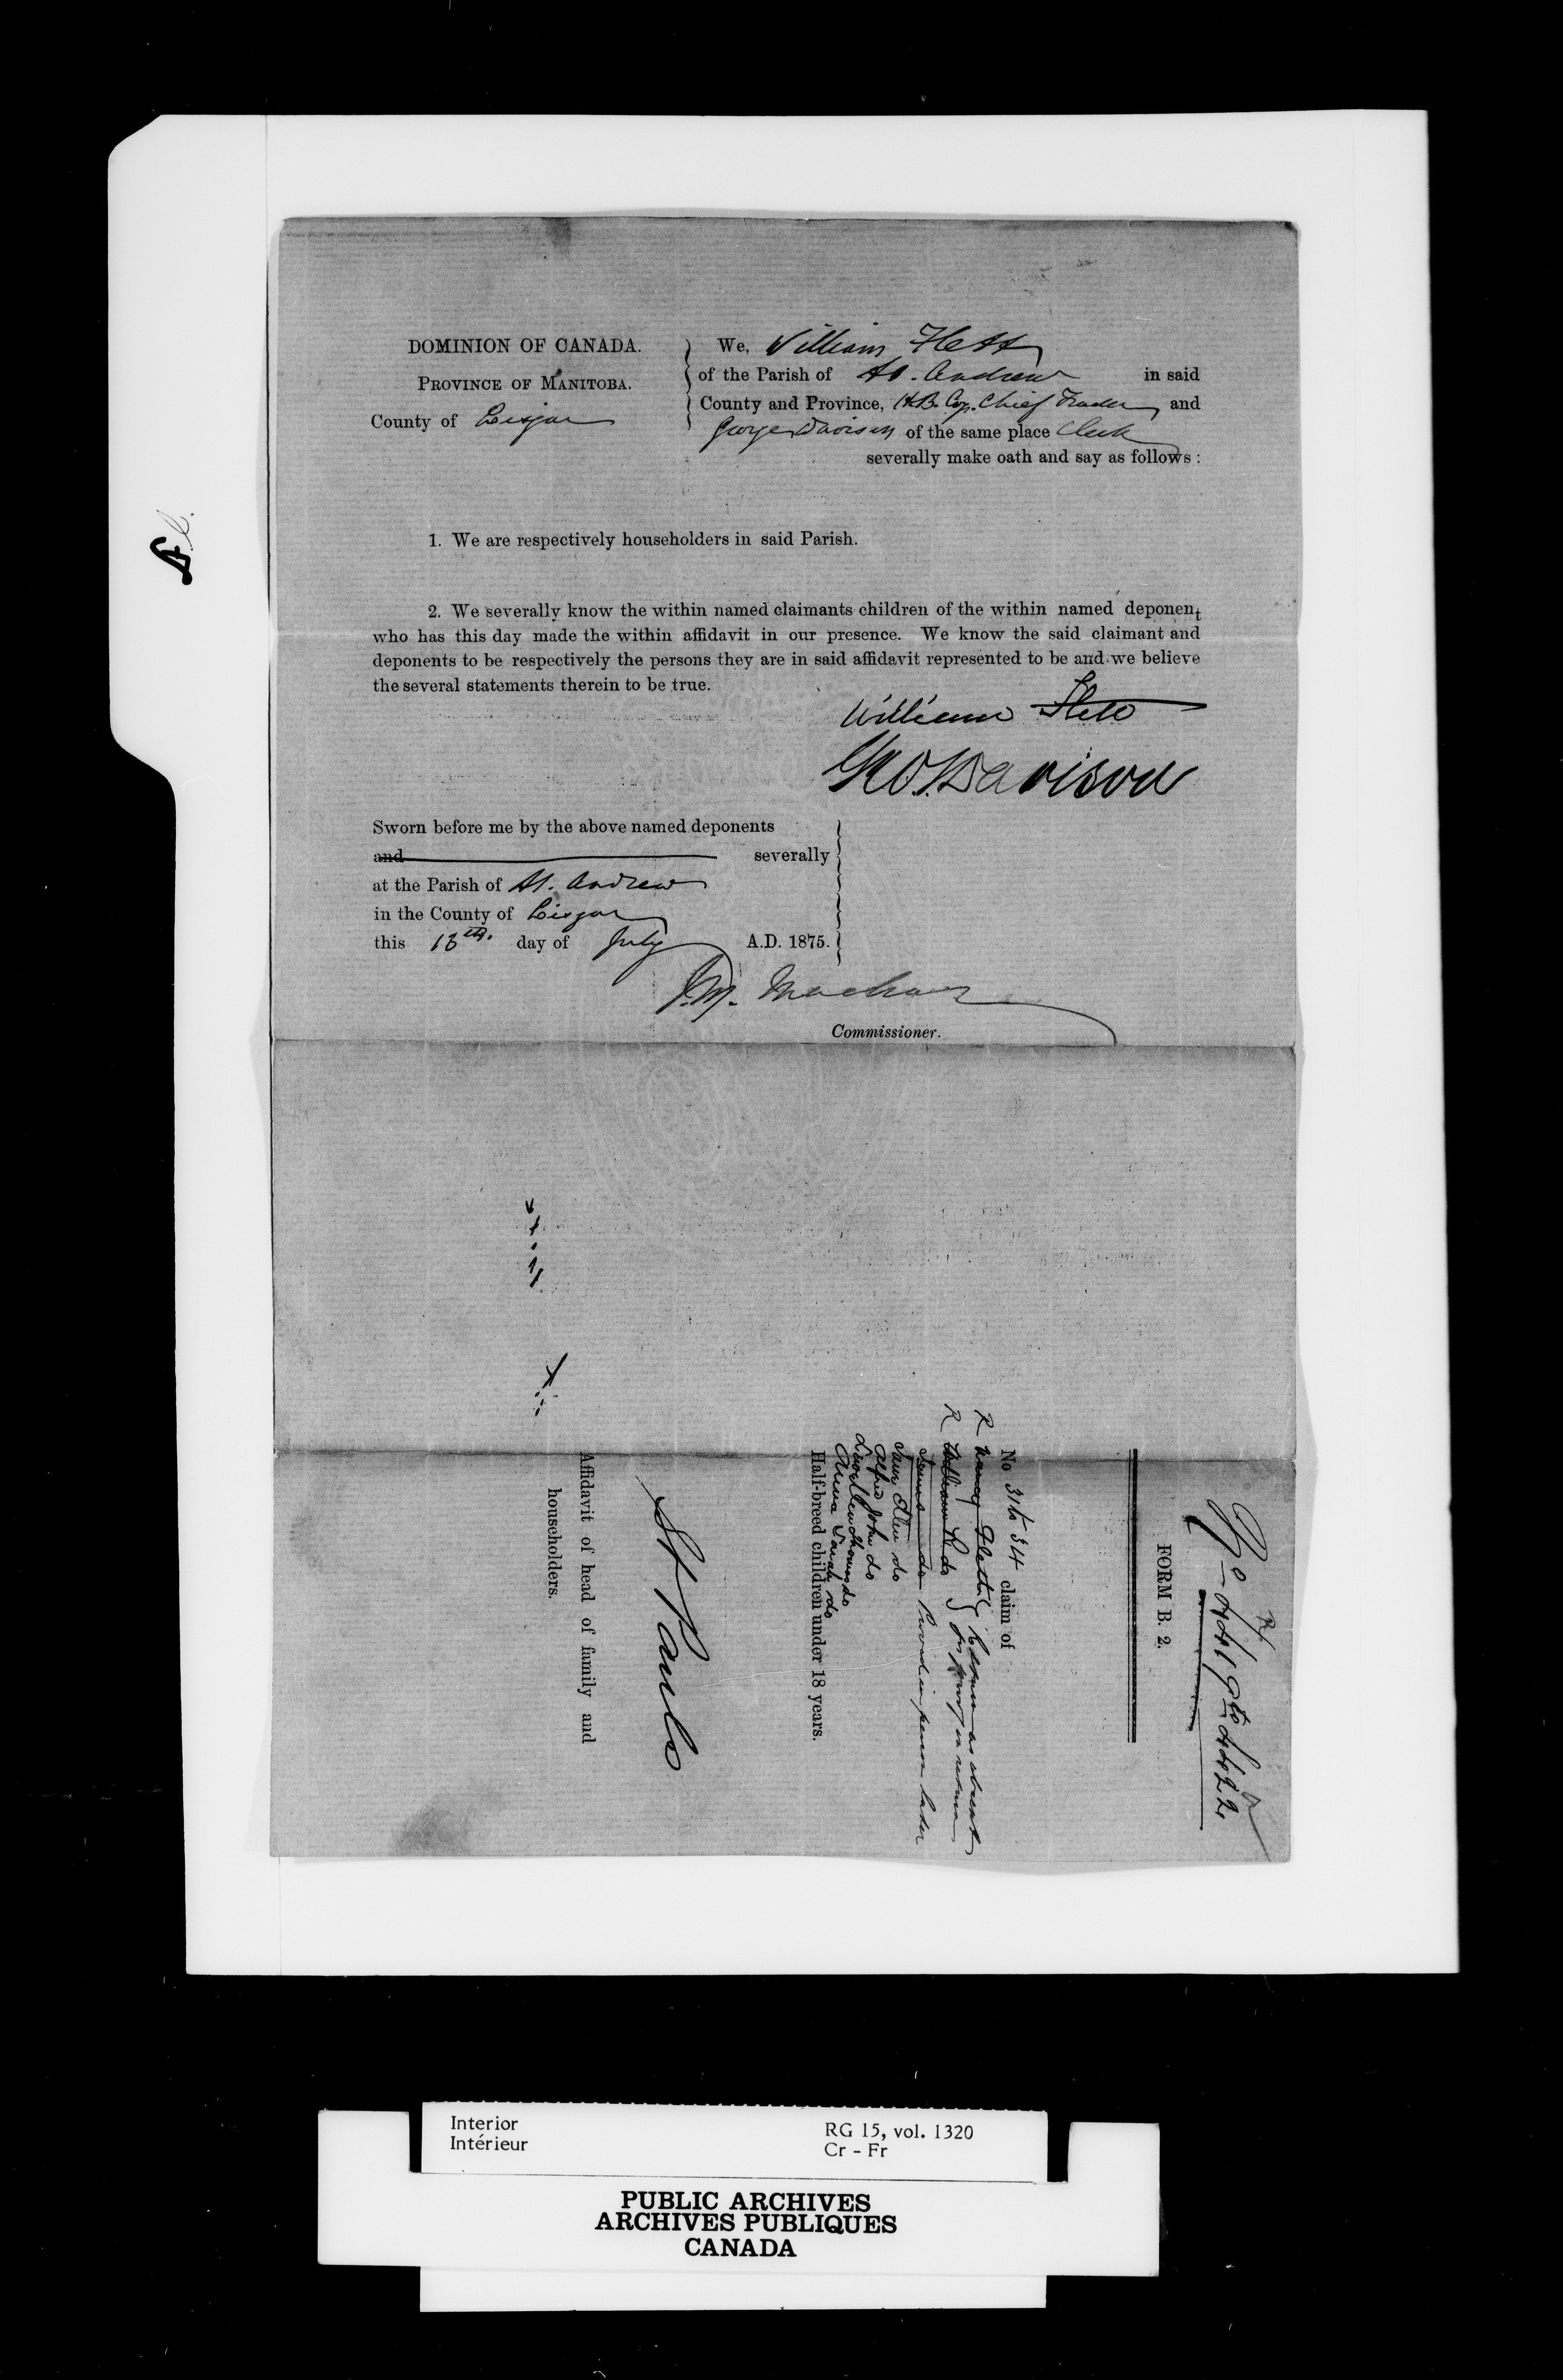 DOMINION OF CANADA.
PROVINCE OF MANITOBA.
County of Lisgar
We, William Flett
of the Parish of St. Andrew in said
County and Province, H.B. Coy. Chief Trader, and
George Davison of the same place Clerk
severally make oath and say as follows :
1. We are respectively householders in said Parish.
2. We severally know the within named claimants children of the within named deponent
who has this day made the within affidavit in our presence. We know the said claimant and
deponents to be respectively the persons they are in said affidavit represented to be and we believe
the several statements therein to be true.
William Flett
Geo. Davison
Sworn before me by the above named deponents
and severally
at the Parish of St. Andrew
in the County of Lisgar
this 13th. day of July A.D. 1875.
J.M. Machar
Commissioner.
No. 4419 to 4422
FORM B. 2.
No 31 to 34 claim of
R Nancy Flett
R William R do
James do Proved in person later
Jane Ellen do
Alfred John do
Anna Sarah do
Half-breed children under 18 years.
St Pauls
Affidavit of head of family and
householders.
Interior
Intérieur
RG 15, vol. 1320
Cr - Fr
PUBLIC ARCHIVES
ARCHIVES PUBLIQUES
CANADA